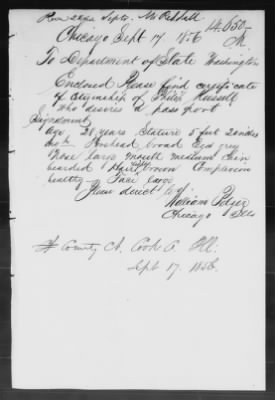 14,650
Chicago Sept 17 1856
To Department of State Washington
Enclosed Please find certificate
of citizenship of Philip Russell
who desires a pass port
Age 28 years Stature 5 feet
high Forehead broad Eyes grey
Nose large mouth medium Chin
bearded Hair brown Complexion
healthy Face large
Please direct to
William
Chicago Ills
County Ct. Cook Co. Ill.
Sept 17. 1856.